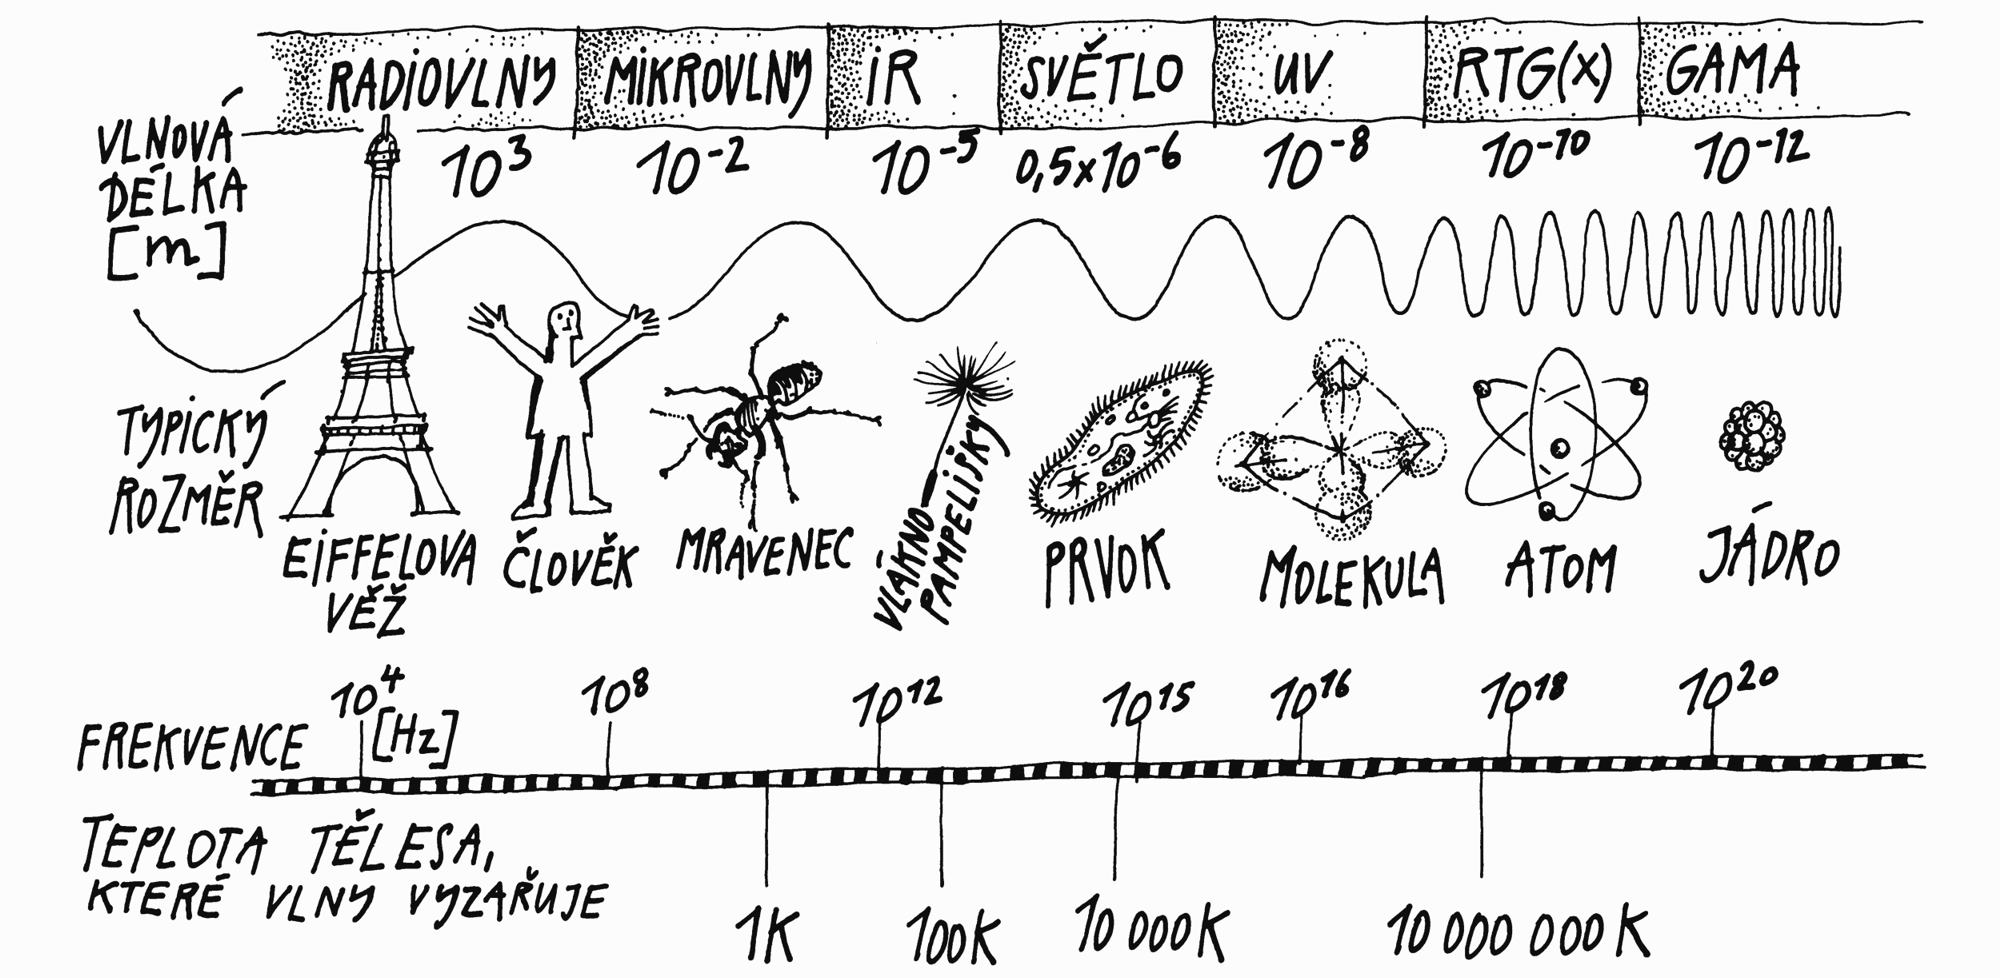 RADIOVLNY MIKROVLNY IR SVĚTLO UV RTG(X) GAMA
VLNOVÁ
DÉLKA
[m]
10³ 10⁻² 10⁻⁵ 0,5x10⁻⁶ 10⁻⁸ 10⁻¹⁰ 10⁻¹²
TYPICKÝ
ROZMĚR
EIFFELOVA
VĚŽ
ČLOVĚK
MRAVENEC
VLÁKNO
PAMPELIŠKY
PRVOK
MOLEKULA
ATOM
JÁDRO
FREKVENCE
[Hz]
10⁴ 10⁸ 10¹² 10¹⁵ 10¹⁶ 10¹⁸ 10²⁰
TEPLOTA TĚLESA,
KTERÉ VLNY VYZAŘUJE
1K 100K 10 000K 10 000 000K